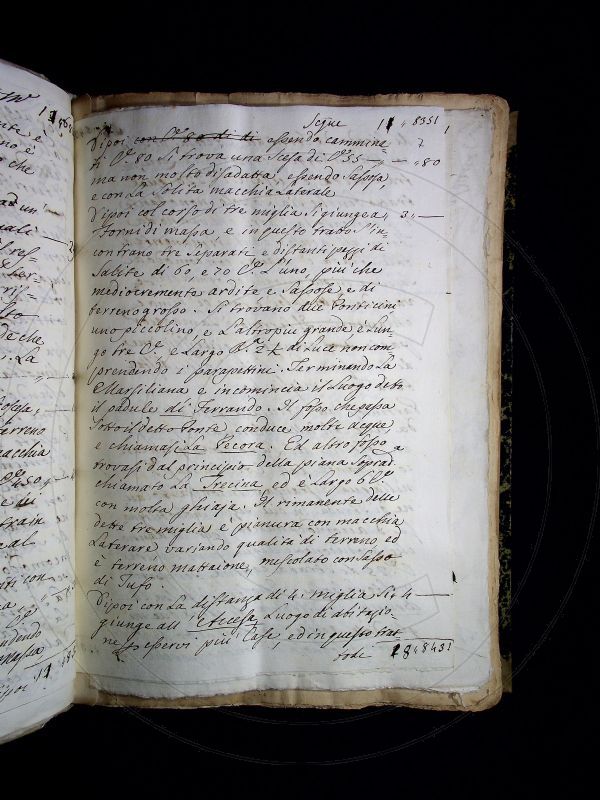 Segue 11 „ 8351
Dipoi con Cᵉ 80 di di essendo cammina
ti Cᵉ 80 Si trova una Scesa di Cᵉ 35 — „ — „ 80
ma non molto disadatta, essendo Sassosa,
e con La Solita macchia Laterale
Dipoi col corso di tre miglia Si giunge a 3 „ —
Forni di massa e in questo tratto S'in
contrano tre Separati e distanti pezzi di
Salite di 60, e 70 Cᵉ L'uno, più che
mediocremente ardite e Sassose e di
terreno grosso. Si trovano due Ponticini
uno piccolino, e L'altro più grande è Lun
go tre Cᵉ e Largo Bᵃ 2½ di Luce non com
prendendo i parapettini. Terminando La
Marsiliana e incomincia il Luogo detto
il padule di Ferrando. Il fosso che passa
Sotto il detto Ponte conduce molte acque
e chiamasi La Pecora. Ed altro fosso
trovasi dal principio della piana Soprad.ᵃ
chiamato La Trecina ed è Largo 6 Cᵉ
con molta ghiaja. Il rimanente delle
dette tre miglia è pianura con macchia
Laterare variando qualità di terreno ed
è terreno mattaione, mescolato con Sasso
di Tufo.
Dipoi con La distanza di 4. miglia Si 4 —
giunge all' Accesa Luogo di abitazio-
ne esservi più Case, ed in questo trat
tode 18 „ 8431